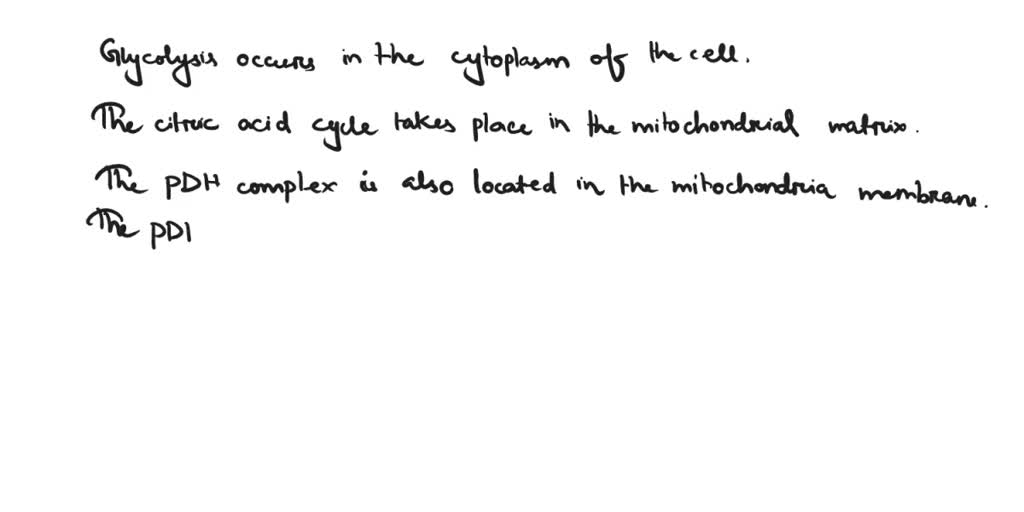 Glycolysis occurs in the cytoplasm of the cell.
The citric acid cycle takes place in the mitochondrial matrix.
The PDH complex is also located in the mitochondria membrane.
The PDI